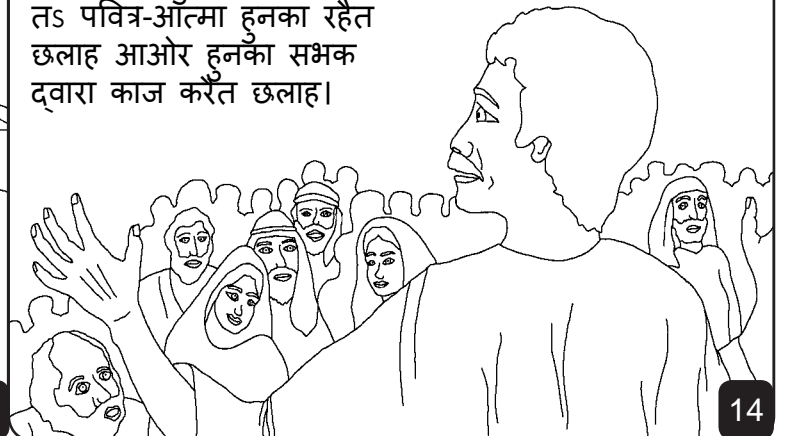 तऽ पवित्र-आत्मा हुनका रहैत
छलाह आओर हुनका सभक
द्वारा काज करैत छलाह।
14